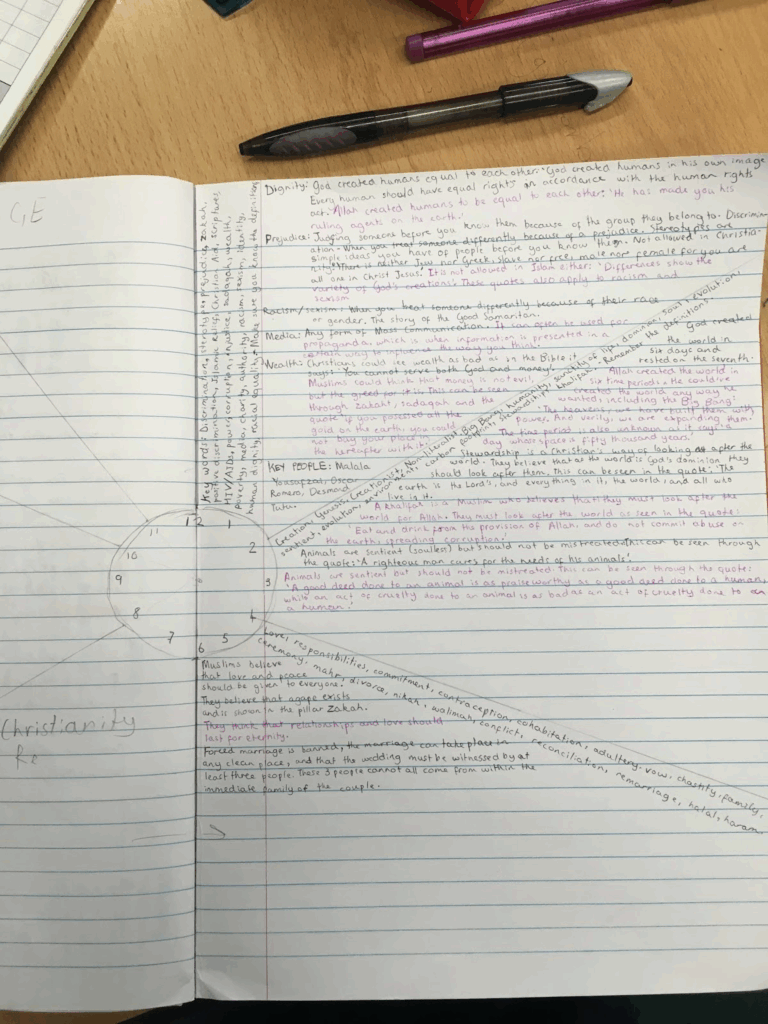 GE
Key words: Discrimination, stereotype, prejudice, zakah,
positive discrimination, Islamic Relief, Christian Aid, scriptures
HIV/AIDs, power, corruption, injustice, sadaqah, wealth,
poverty, media, charity, authority, racism, sexism, identity,
human dignity, racial equality. Make sure you know the definition
Dignity: God created humans equal to each other: 'God created humans in his own image
Every human should have equal rights in accordance with the human rights
act. 'Allah created humans to be equal to each other: 'He has made you his
ruling agents on the earth.'
Prejudice: Judging someone before you know them because of the group they belong to. Discrimin-
ation - When you treat someone differently because of a prejudice. Stereotypes are
simple ideas you have of people before you know them. Not allowed in Christia-
nity: 'There is neither Jew nor Greek, slave nor free, male nor female for you are
all one in Christ Jesus.' It is not allowed in Islam either: 'Differences show the
variety of God's creations.' These quotes also apply to racism and
sexism
Racism/sexism: When you treat someone differently because of their race
or gender. The story of the Good Samaritan.
Media: Any form of Mass Communication. It can often be used for
propaganda, which is when information is presented in a
certain way to influence the way you think.
Wealth: Christians could see wealth as bad as in the Bible it
says: 'You cannot serve both God and money'.
Muslims could think that money is not evil,
but the greed for it is. This can be seen
through zakah, sadaqah and the
quote if you possessed all the
gold on the earth, you could
not buy your place in
the hereafter with it.
KEY PEOPLE: Malala
Yousafzai, Oscar
Romero, Desmond
Tutu.
Creation, Genesis, Creationist, Non literalist, Big Bang, humanity, sanctity of life, dominion, soul, evolution,
sentient, evolution, environment, carbon footprint, khalifah. Remember the definitions.
God created
the world in
six days and
rested on the seventh.
Allah created the world in
six time periods. He could've
created the world any way he
wanted, including the Big Bang:
'The heavens, we have built them with
power. And verily, we are expanding them.'
The time period is also unknown as it says 'a
day whose space is fifty thousand years.'
Stewardship is a Christian's way of looking after the
world. They believe that as the world is God's dominion they
should look after them. This can be seen in the quote: 'The
earth is the Lord's, and everything in it, the world, and all who
live in it.
A khalifah is a Muslim who believes that they must look after the
world for Allah. They must look after the world as seen in the quote:
'Eat and drink from the provision of Allah, and do not commit abuse on
the earth, spreading corruption.'
Animals are sentient (soulless) but should not be mistreated. This can be seen through
the quote: 'A righteous man cares for the needs of his animals'.
Animals are sentient but should not be mistreated. This can be seen through the quote:
'A good deed done to an animal is as praiseworthy as a good deed done to a human,
while an act of cruelty done to an animal is as bad as an act of cruelty done to
a human.'
12
1
2
3
4
5
6
7
8
9
10
11
Love, responsibilities, commitment, contraception, cohabitation, adultery, vow, chastity, family,
ceremony, mahr, divorce, nikah, walimah, conflict, reconciliation, remarriage, halal, haram.
Muslims believe
that love and peace
should be given to everyone.
They believe that agape exists
and is shown in the pillar zakah.
They think that relationships and love should
last for eternity.
Forced marriage is banned, the marriage can take place in
any clean place, and that the wedding must be witnessed by at
least three people. These 3 people cannot all come from within the
immediate family of the couple.
Christianity